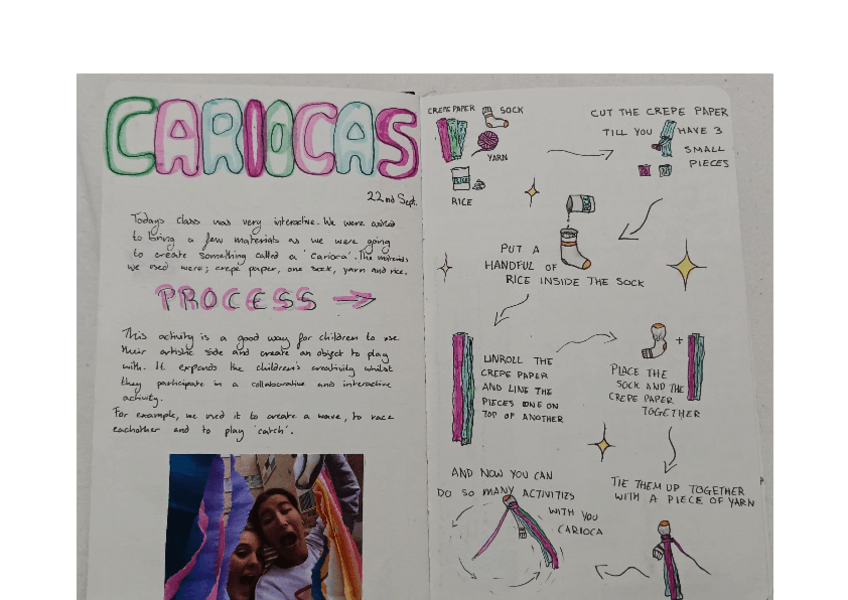 CARIOCAS
22nd Sept.
Todays class was very interactive. We were asked
to bring a few materials as we were going
to create something called a 'carioca'. The materials
we used were; crepe paper, one sock, yarn and rice.
PROCESS
This activity is a good way for children to use
their artistic side and create an object to play
with. It expands the children's creativity whilst
they participate in a collaborative and interactive
activity.
For example, we used it to create a wave, to race
eachother and to play 'catch'.
CREPE PAPER
SOCK
YARN
RICE
RICE
CUT THE CREPE PAPER
TILL YOU HAVE 3
SMALL
PIECES
PUT A
HANDFUL OF
RICE INSIDE THE SOCK
UNROLL THE
CREPE PAPER
AND LINE THE
PIECES ONE ON
TOP OF ANOTHER
+
PLACE THE
SOCK AND THE
CREPE PAPER
TOGETHER
TIE THEM UP TOGETHER
WITH A PIECE OF YARN
AND NOW YOU CAN
DO SO MANY ACTIVITIES
WITH YOU
CARIOCA